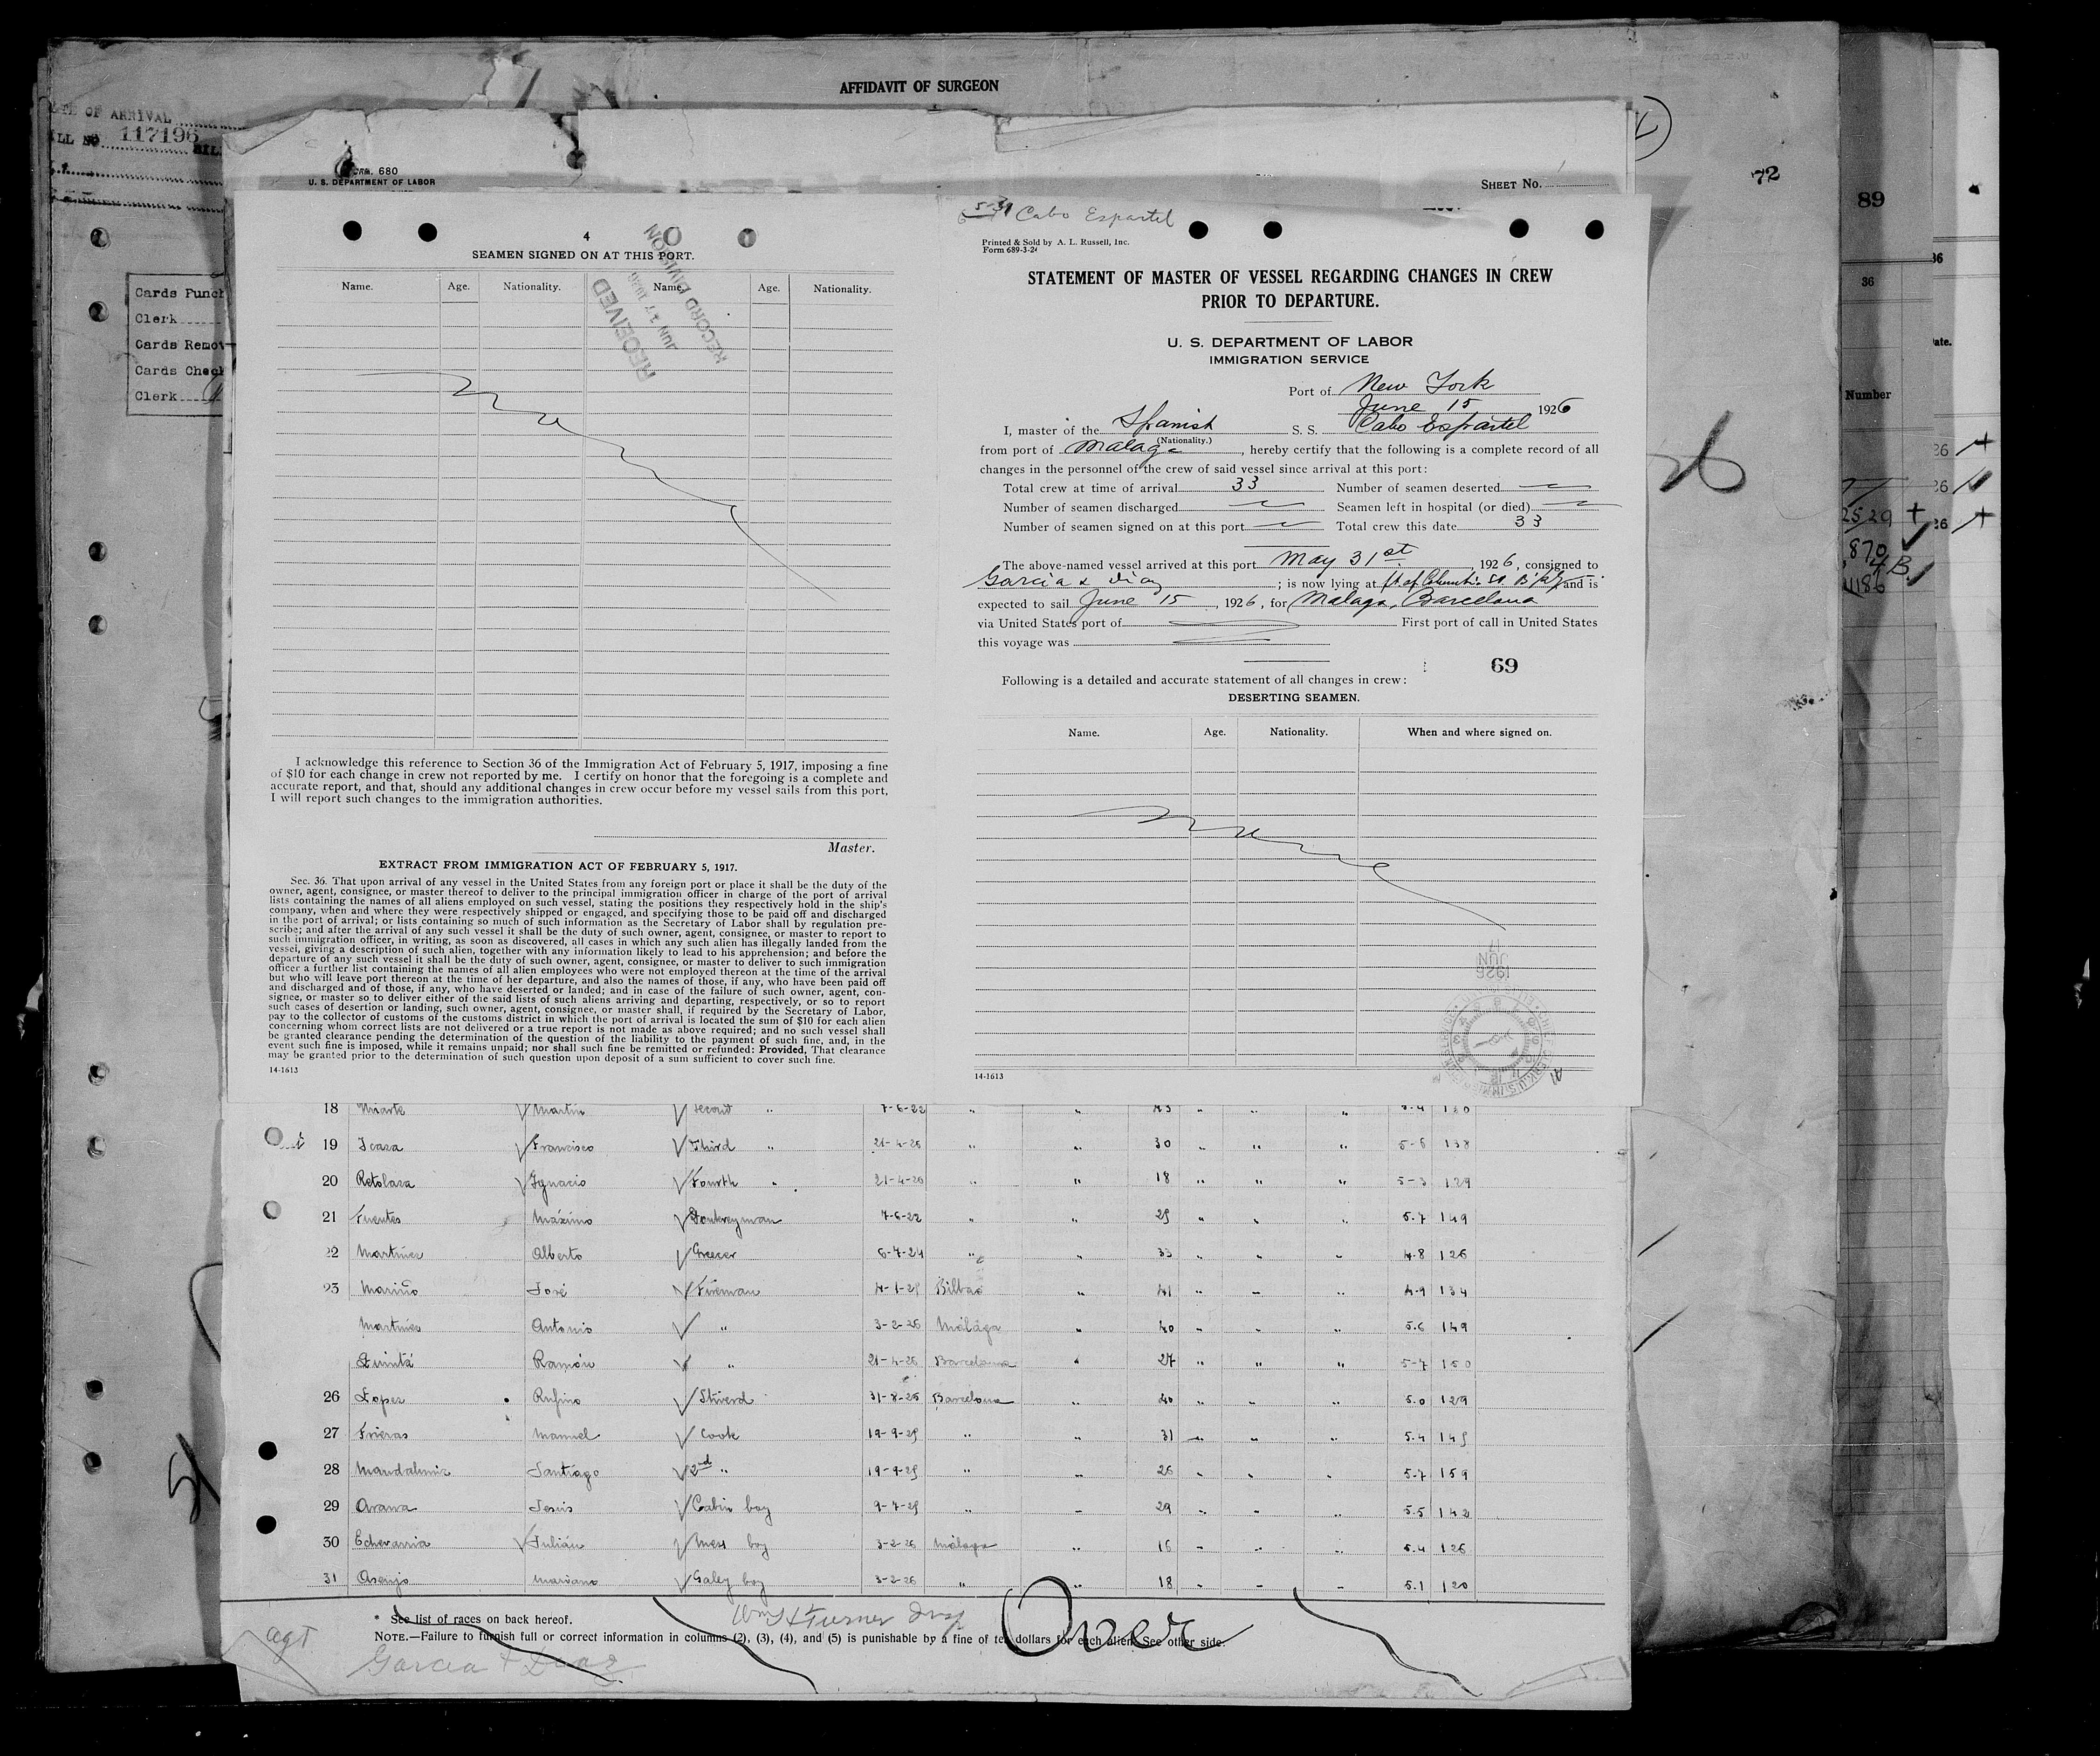 AFFIDAVIT OF SURGEON
OF ARRIVAL
117196
FORM. 680
U. S. DEPARTMENT OF LABOR
SHEET No.
72
89
36
Cards Punch
Clerk
Cards Remov
Cards Check
Clerk
Number
4
SEAMEN SIGNED ON AT THIS PORT.
Name. Age. Nationality. Name. Age. Nationality.
RECEIVED
JUN 17 1926
RECORD DIVISION
I acknowledge this reference to Section 36 of the Immigration Act of February 5, 1917, imposing a fine
of $10 for each change in crew not reported by me. I certify on honor that the foregoing is a complete and
accurate report, and that, should any additional changes in crew occur before my vessel sails from this port,
I will report such changes to the immigration authorities.
Master.
EXTRACT FROM IMMIGRATION ACT OF FEBRUARY 5, 1917.
Sec. 36. That upon arrival of any vessel in the United States from any foreign port or place it shall be the duty of the
owner, agent, consignee, or master thereof to deliver to the principal immigration officer in charge of the port of arrival
lists containing the names of all aliens employed on such vessel, stating the positions they respectively hold in the ship's
company, when and where they were respectively shipped or engaged, and specifying those to be paid off and discharged
in the port of arrival; or lists containing so much of such information as the Secretary of Labor shall by regulation pre-
scribe; and after the arrival of any such vessel it shall be the duty of such owner, agent, consignee, or master to report to
such immigration officer, in writing, as soon as discovered, all cases in which any such alien has illegally landed from the
vessel, giving a description of such alien, together with any information likely to lead to his apprehension; and before the
departure of any such vessel it shall be the duty of such owner, agent, consignee, or master to deliver to such immigration
officer a further list containing the names of all alien employees who were not employed thereon at the time of the arrival
but who will leave port thereon at the time of her departure, and also the names of those, if any, who have been paid off
and discharged and of those, if any, who have deserted or landed; and in case of the failure of such owner, agent, con-
signee, or master so to deliver either of the said lists of such aliens arriving and departing, respectively, or so to report
such cases of desertion or landing, such owner, agent, consignee, or master shall, if required by the Secretary of Labor,
pay to the collector of customs of the customs district in which the port of arrival is located the sum of $10 for each alien
concerning whom correct lists are not delivered or a true report is not made as above required; and no such vessel shall
be granted clearance pending the determination of the question of the liability to the payment of such fine, and, in the
event such fine is imposed, while it remains unpaid; nor shall such fine be remitted or refunded: Provided, That clearance
may be granted prior to the determination of such question upon deposit of a sum sufficient to cover such fine.
14-1613
5-31 Cabo Espartel
Printed & Sold by A. L. Russell, Inc.
Form 689-3-24
STATEMENT OF MASTER OF VESSEL REGARDING CHANGES IN CREW
PRIOR TO DEPARTURE.
U. S. DEPARTMENT OF LABOR
IMMIGRATION SERVICE
Port of New York
June 15 1926
I, master of the Spanish S. S. Cabo Espartel
(Nationality.)
from port of Malaga, hereby certify that the following is a complete record of all
changes in the personnel of the crew of said vessel since arrival at this port:
Total crew at time of arrival 33 Number of seamen deserted
Number of seamen discharged Seamen left in hospital (or died)
Number of seamen signed on at this port Total crew this date 33
The above-named vessel arrived at this port May 31st, 1926, consigned to
Garcia & Diaz; is now lying at ft of Columbia St B'klyn and is
expected to sail June 15, 1926, for Malaga, Barcelona
via United States port of First port of call in United States
this voyage was
69
Following is a detailed and accurate statement of all changes in crew:
DESERTING SEAMEN.
Name. Age. Nationality. When and where signed on.
14-1613
18 Uriarte Martin Second " 7-6-22
19 Icaza Francisco Third " 21-4-26 " " 30 " " " 5-6 138
20 Retolaza Ignacio Fourth " 21-4-26 " " 18 " " " 5-3 129
21 Fuentes Máximo Donkeyman 7-6-22 " " 25 " " " 5.7 149
22 Martinez Alberto Greeser 6-7-24 " " 33 " " " 4.8 126
23 Mariño José Fireman 4-1-25 Bilbao " 41 " " " 4.9 134
Martinez Antonio " 3-2-26 Málaga " 40 " " " 5.6 149
Quintá Ramón " 21-4-26 Barcelona " 27 " " " 5-7 150
26 Lopez Rufino Stiverd 31-8-25 Barcelona " 40 " " " 5.0 129
27 Frieras Manuel Cook 19-9-25 " " 31 " " " 5.4 145
28 Mandaluniz Santiago 2nd " 19-9-25 " " 26 " " " 5.7 159
29 Arana Jesús Cabin boy 9-7-25 " " 29 " " " 5.5 142
30 Echevarria Julián Mess boy 3-2-26 Málaga " 16 " " " 5.4 126
31 Asenjo Mariano Galey boy 3-2-26 " " 18 " " " 5.1 120
* See list of races on back hereof.
Wm H Turner
NOTE.—Failure to furnish full or correct information in columns (2), (3), (4), and (5) is punishable by a fine of ten dollars for each alien. See other side.
Over
agt
Garcia & Diaz